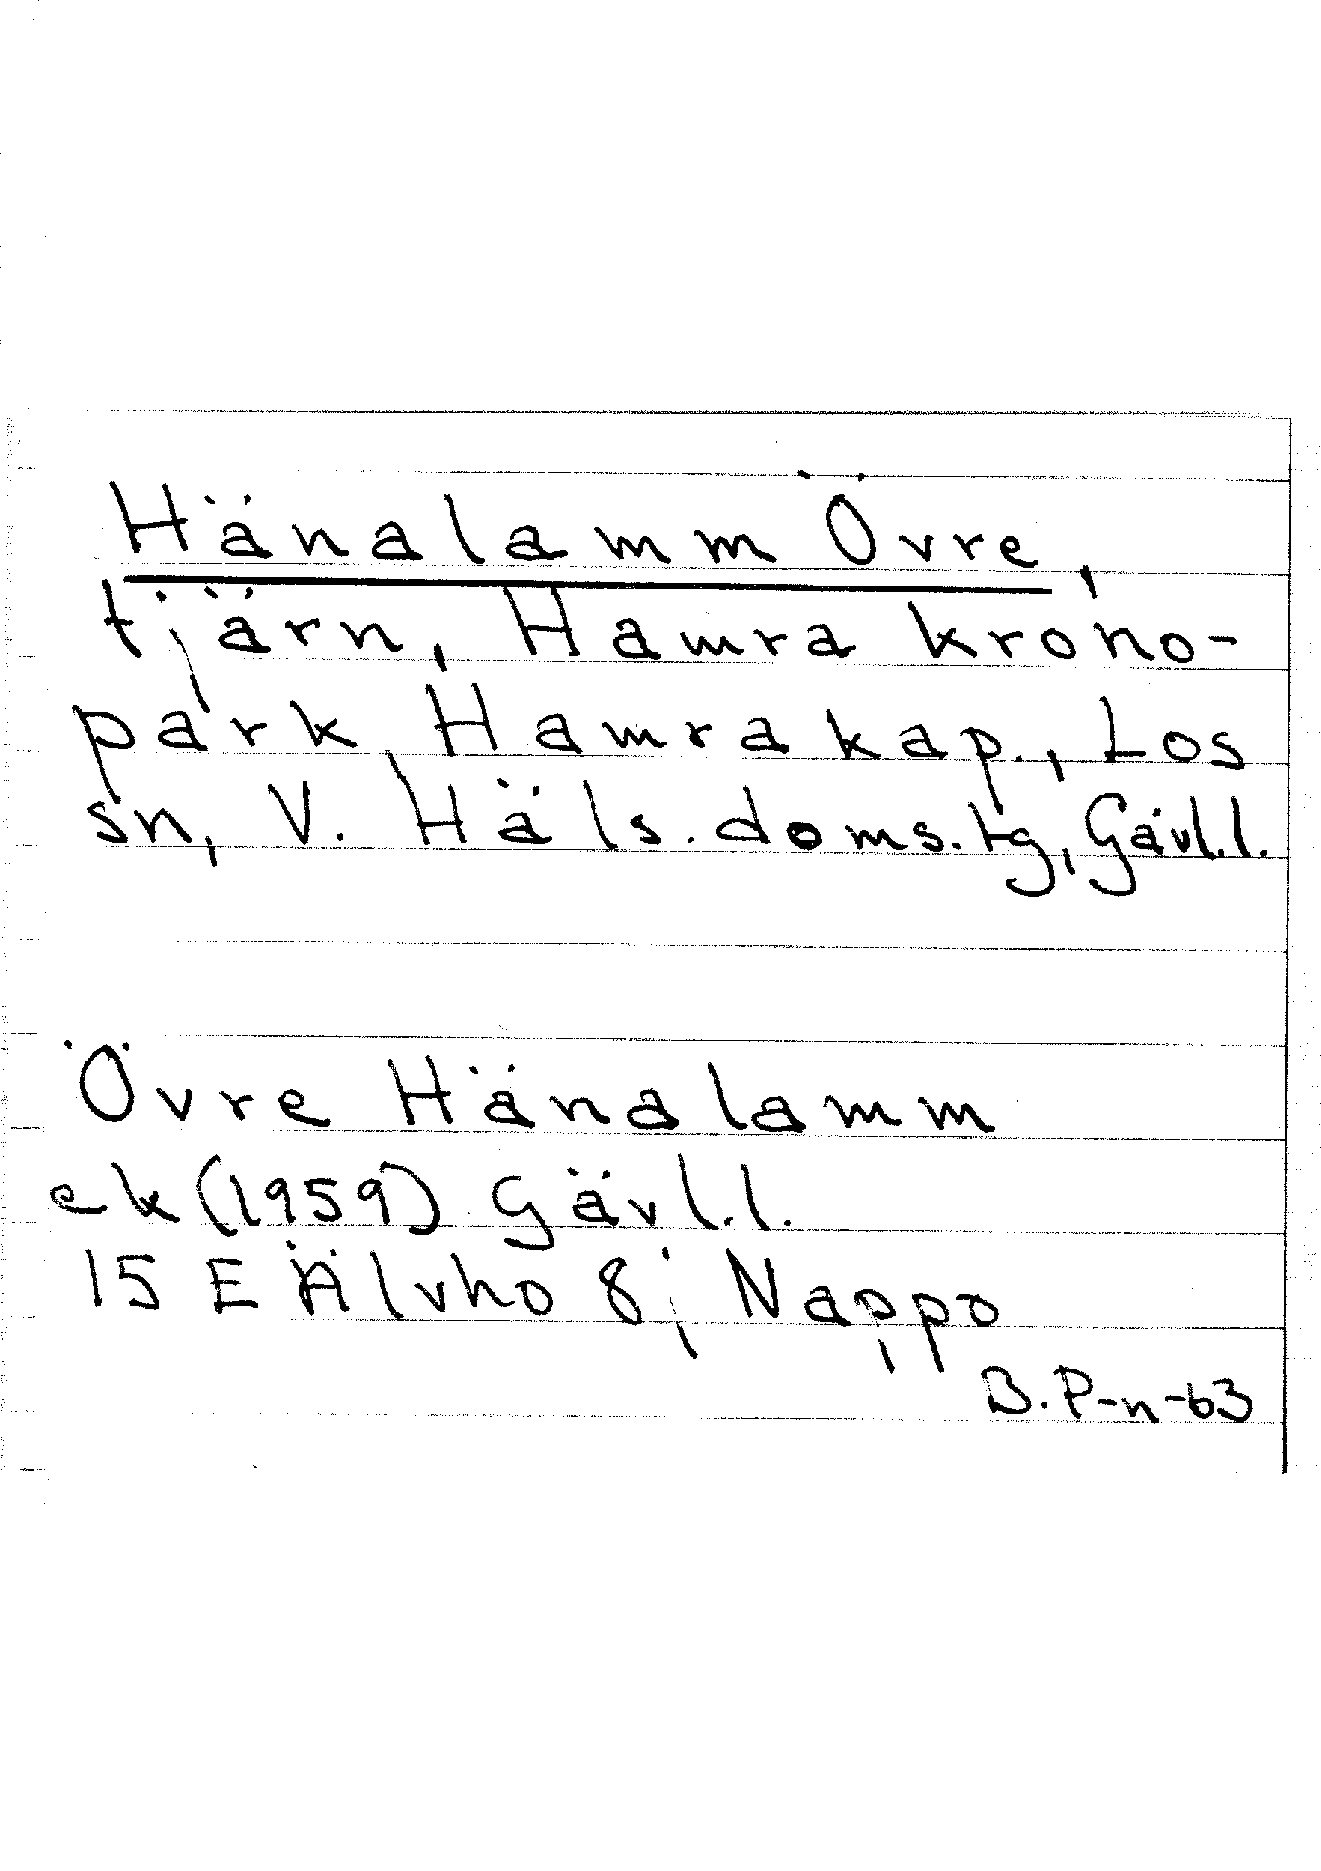 Hänalamm Övre,
tjärn, Hamra krono-
park, Hamra kap., Los
sn, V. Häls. doms. tg, Gävl. l.
Övre Hänalamm
ek (1959) Gävl. l.
15 E Älvho 8; Nappo
B. P-n-63